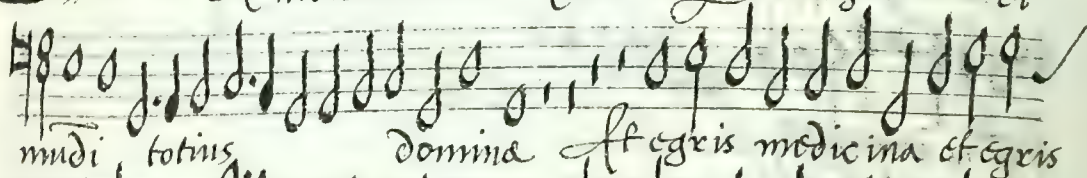 mūdi totius domina Et egris medicina et egris